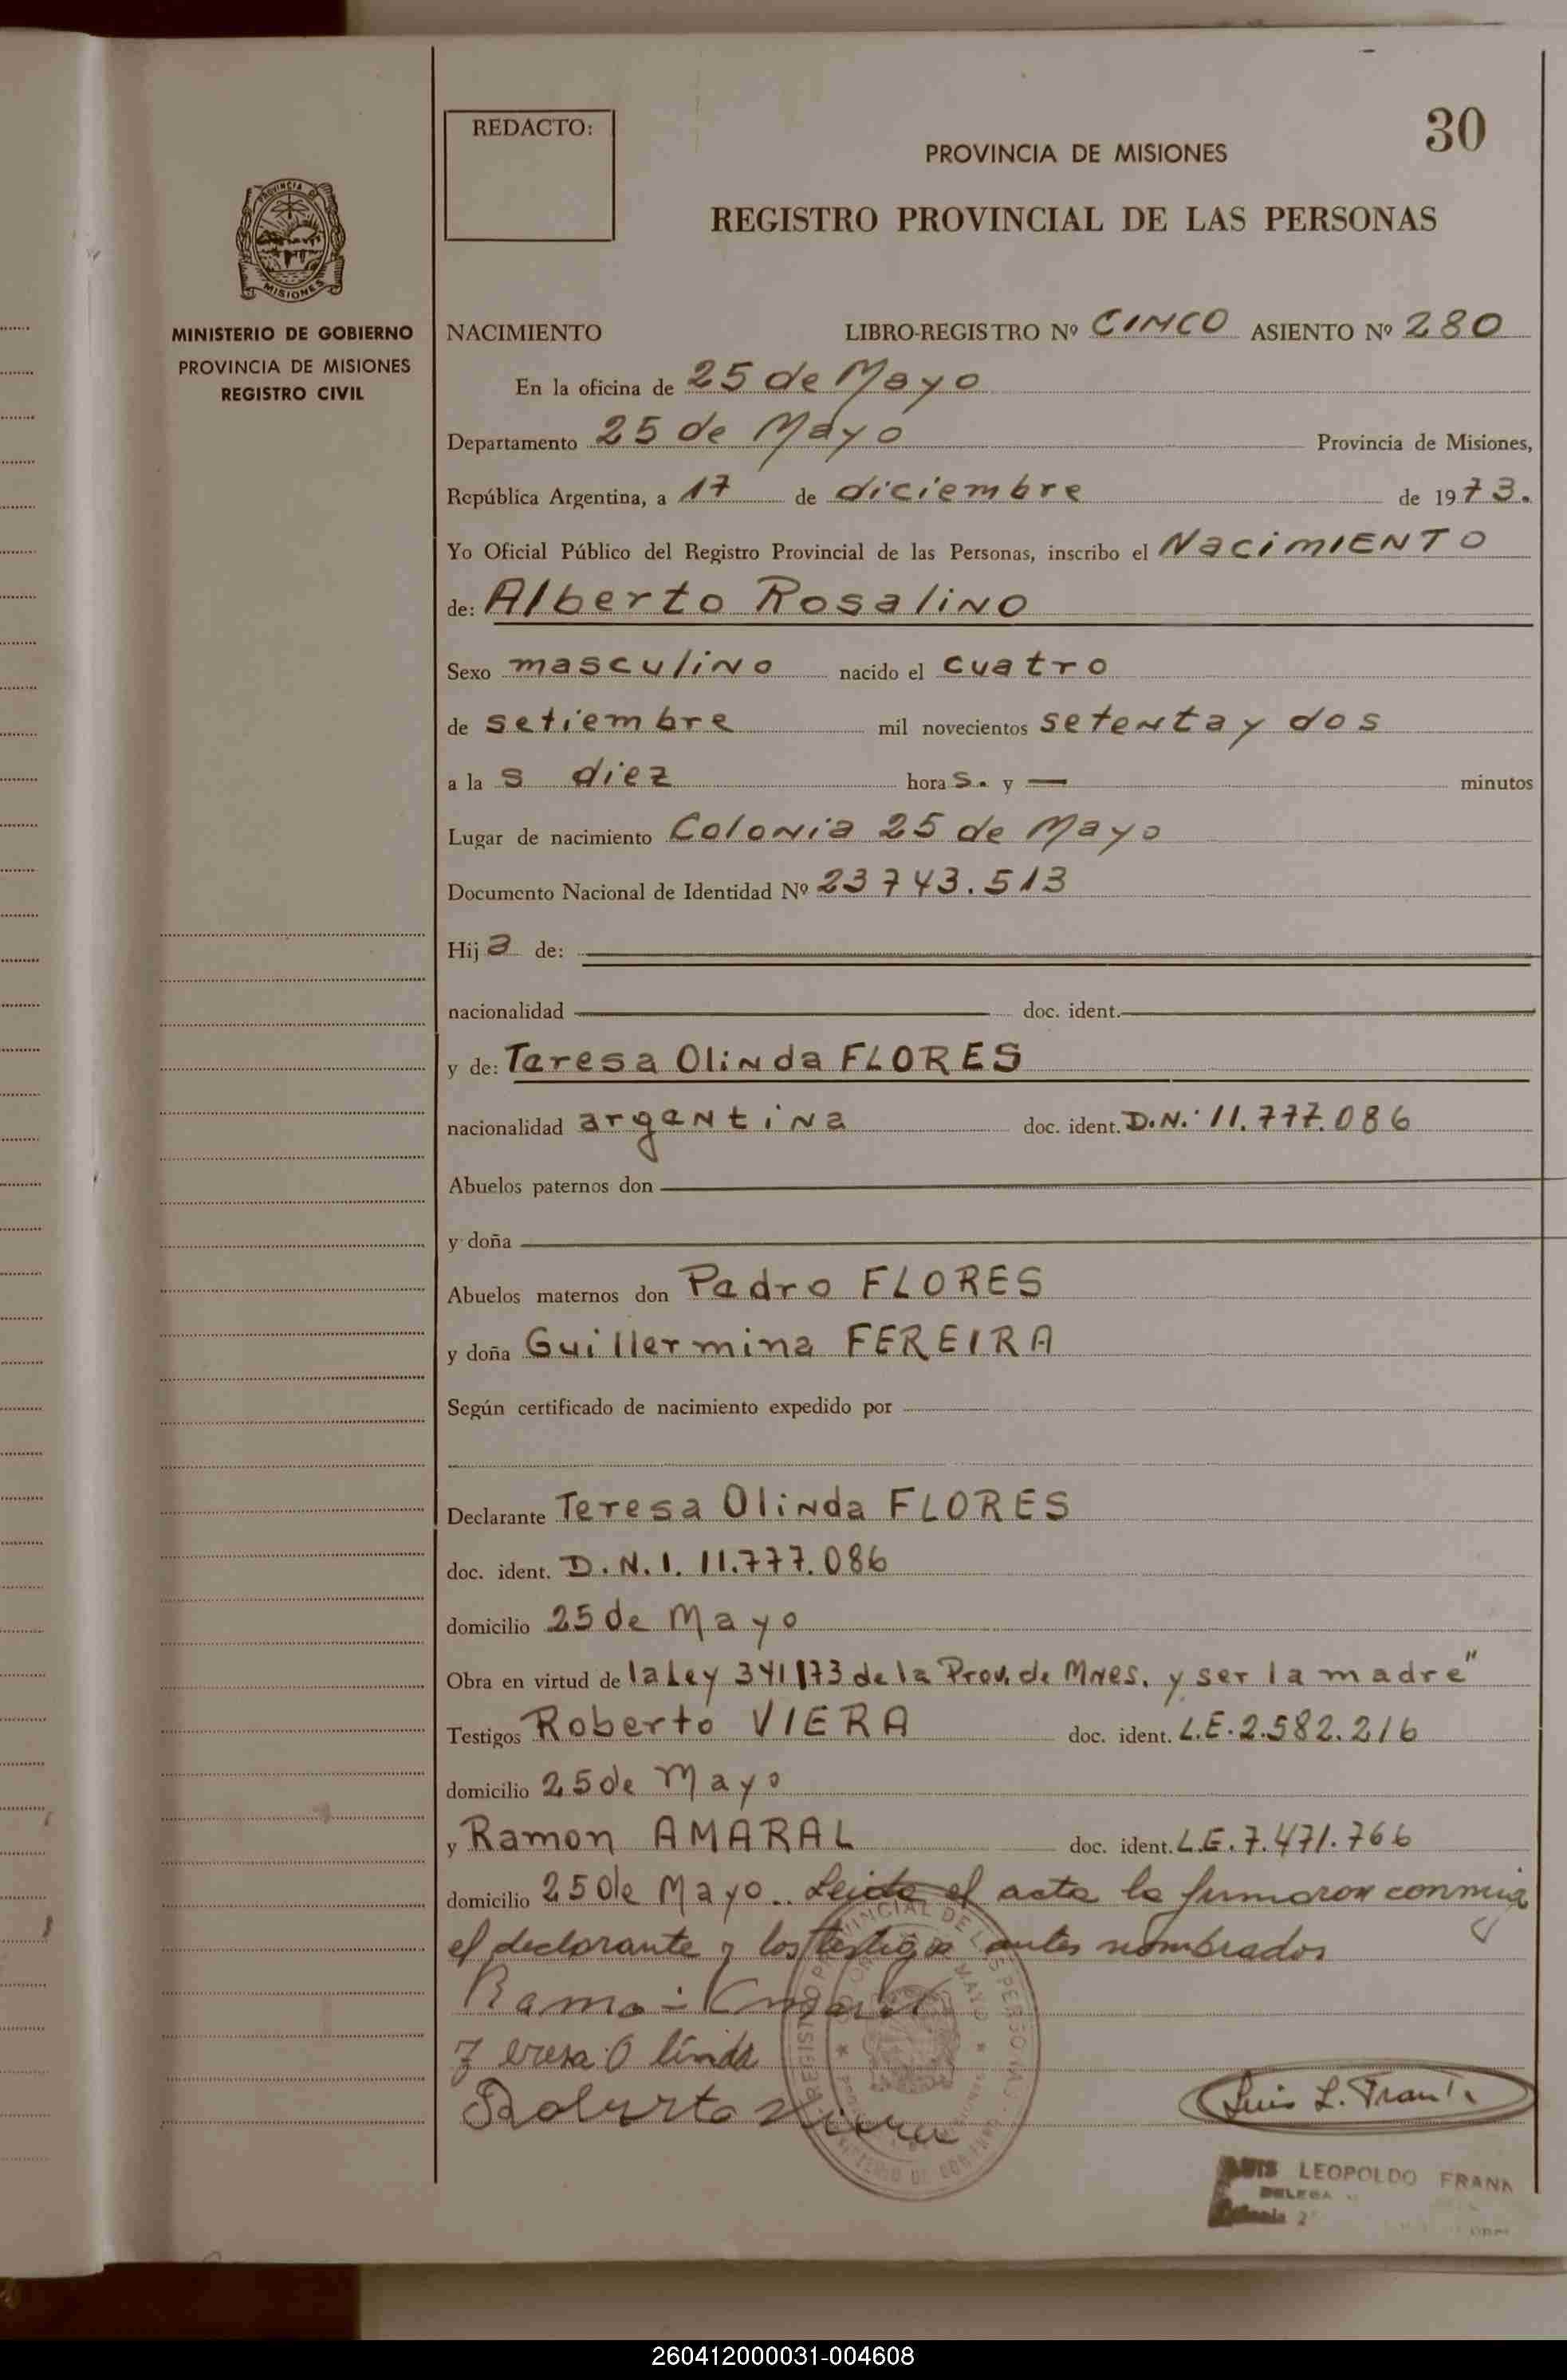 REDACTO:
30
PROVINCIA DE MISIONES
REGISTRO PROVINCIAL DE LAS PERSONAS
PROVINCIA DE
MISIONES
MINISTERIO DE GOBIERNO
PROVINCIA DE MISIONES
REGISTRO CIVIL
NACIMIENTO LIBRO-REGISTRO Nº CINCO ASIENTO Nº 280
En la oficina de 25 de Mayo
Departamento 25 de Mayo Provincia de Misiones,
República Argentina, a 17 de diciembre de 1973.
Yo Oficial Público del Registro Provincial de las Personas, inscribo el NaciMIENTO
de: Alberto RosaliNO
Sexo masculiNO nacido el cuatro
de setiembre mil novecientos seteNta y dos
a la s diez hora s. y — minutos
Lugar de nacimiento Colonia 25 de Mayo
Documento Nacional de Identidad Nº 23743.513
Hij a de:
nacionalidad doc. ident.
y de: Teresa Olinda FLORES
nacionalidad argentina doc. ident. D.N. 11.777.086
Abuelos paternos don
y doña
Abuelos maternos don Pedro FLORES
y doña Guillermina FEREIRA
Según certificado de nacimiento expedido por
Declarante Teresa Olinda FLORES
doc. ident. D.N.I. 11.777.086
domicilio 25 de Mayo
Obra en virtud de la Ley 341173 de la Prov. de Mnes. y ser la madre"
Testigos Roberto VIERA doc. ident. L.E. 2.582.216
domicilio 25 de Mayo
y Ramon AMARAL doc. ident. L.E. 7.471.766
domicilio 25 de Mayo.. Leida el acta la firmaron conmigo
el declarante y los testigos antes nombrados
Teresa Olinda
Roberto Viera
Luis L. Frank
LUIS LEOPOLDO FRANK
DELEGA
Colonia 2
260412000031-004608